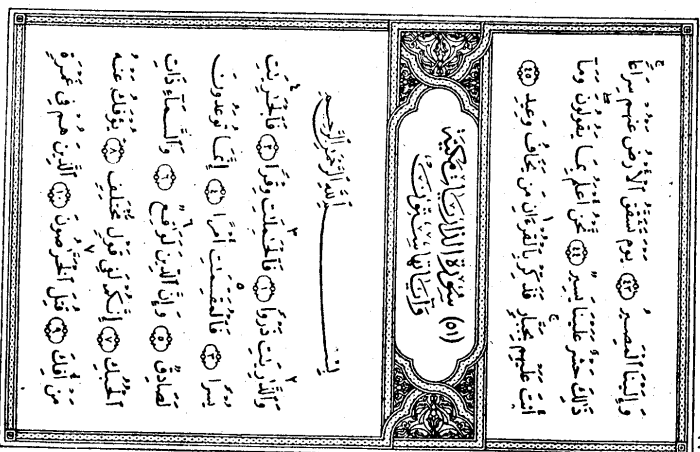 وَإِلَيْنَا ٱلْمَصِيرُ ﴿٤٣﴾ يَوْمَ تَشَقَّقُ ٱلْأَرْضُ عَنْهُمْ سِرَاعًا
ذَٰلِكَ حَشْرٌ عَلَيْنَا يَسِيرٌ ﴿٤٤﴾ نَّحْنُ أَعْلَمُ بِمَا يَقُولُونَ وَمَآ
أَنتَ عَلَيْهِم بِجَبَّارٍ فَذَكِّرْ بِٱلْقُرْءَانِ مَن يَخَافُ وَعِيدِ ﴿٤٥﴾
(٥١) سورة الذاريات مكية
وآياتها ستون
بِسْمِ ٱللَّهِ ٱلرَّحْمَٰنِ ٱلرَّحِيمِ
وَٱلذَّٰرِيَٰتِ ذَرْوًا ﴿١﴾ فَٱلْحَٰمِلَٰتِ وِقْرًا ﴿٢﴾ فَٱلْجَٰرِيَٰتِ
يُسْرًا ﴿٣﴾ فَٱلْمُقَسِّمَٰتِ أَمْرًا ﴿٤﴾ إِنَّمَا تُوعَدُونَ
لَصَادِقٌ ﴿٥﴾ وَإِنَّ ٱلدِّينَ لَوَٰقِعٌ ﴿٦﴾ وَٱلسَّمَآءِ ذَاتِ
ٱلْحُبُكِ ﴿٧﴾ إِنَّكُمْ لَفِى قَوْلٍ مُّخْتَلِفٍ ﴿٨﴾ يُؤْفَكُ عَنْهُ
مَنْ أُفِكَ ﴿٩﴾ قُتِلَ ٱلْخَرَّٰصُونَ ﴿١٠﴾ ٱلَّذِينَ هُمْ فِى غَمْرَةٍ